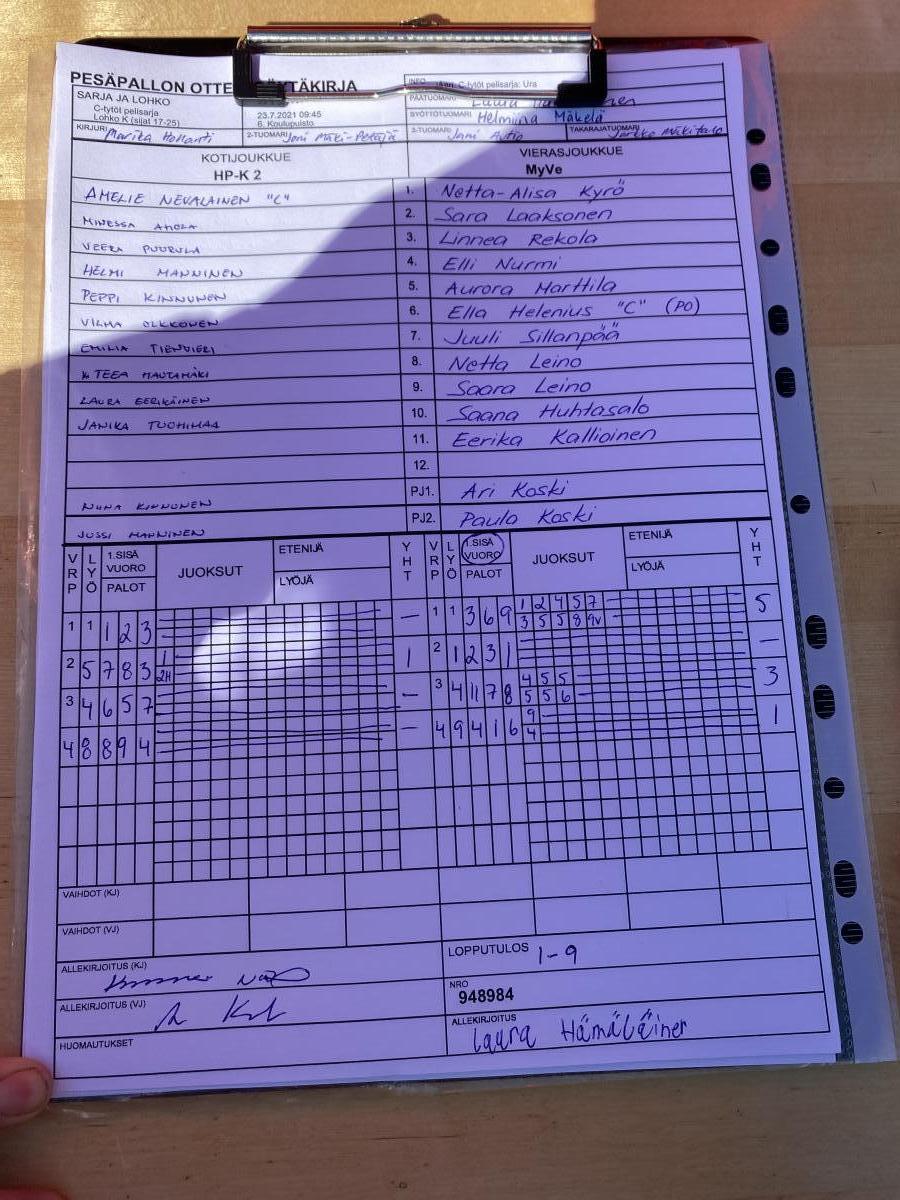 PESÄPALLON OTTE YTÄKIRJA
SARJA JA LOHKO
C-tytöt pelisarja
Lohko K (sijat 17-25)
23.7.2021 09:45
6. Koulupuisto
INFO C-tytöt pelisarja: Ura
PÄÄTUOMARI Laura
SYÖTTÖTUOMARI Helmiina Mäkelä
KIRJURI Marika Hollanti
2-TUOMARI Joni Mäki-Petäjä
3-TUOMARI Jani Autio
TAKARAJATUOMARI Jarkko Mäkitalo
KOTIJOUKKUE
HP-K 2
VIERASJOUKKUE
MyVe
AMELIE NEVALAINEN "C" 1. Netta-Alisa Kyrö
MINESSA AHOLA 2. Sara Laaksonen
VEERA PUURULA 3. Linnea Rekola
HELMI MANNINEN 4. Elli Nurmi
PEPPI KINNUNEN 5. Aurora Marttila
VILMA OLKKONEN 6. Ella Helenius "C" (PO)
EMILIA TIENVIERI 7. Juuli Sillanpää
TEEA HAUTAMÄKI 8. Netta Leino
LAURA EERIKÄINEN 9. Saara Leino
JANIKA TUOHIMAA 10. Saana Huhtasalo
11. Eerika Kallioinen
12.
NINA KINNUNEN PJ1. Ari Koski
JUSSI MANNINEN PJ2. Paula Koski
VRP LYÖ 1.SISÄ VUORO PALOT JUOKSUT ETENIJÄ LYÖJÄ YHT VRP LYÖ 1.SISÄ VUORO PALOT JUOKSUT ETENIJÄ LYÖJÄ YHT
1 1 1 2 3 – 1 1 3 6 9 1 2 4 5 7 5
3 5 5 8 9v
2 5 7 8 3 1 1 2 1 2 3 1 –
2H
3 4 6 5 7 – 3 4 11 7 8 4 5 5 3
5 5 6
4 8 8 9 4 – 4 9 4 1 6 9 1
4
VAIHDOT (KJ)
VAIHDOT (VJ)
ALLEKIRJOITUS (KJ)
LOPPUTULOS 1-9
ALLEKIRJOITUS (VJ)
NRO
948984
HUOMAUTUKSET
ALLEKIRJOITUS
Laura Hämäläinen